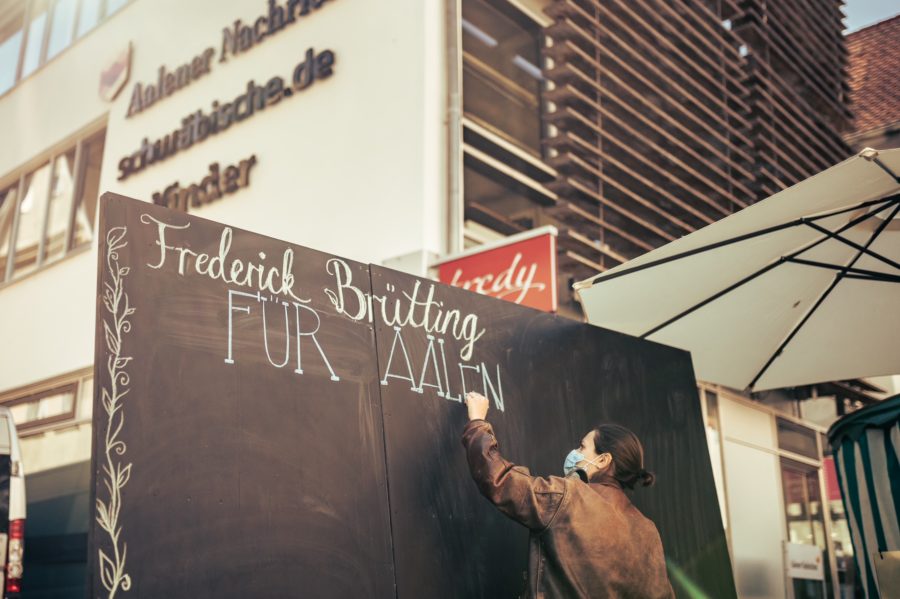 Aalener Nachri
schwäbische.de
Kinder
tredy
Frederick Brütting
FÜR AALEN